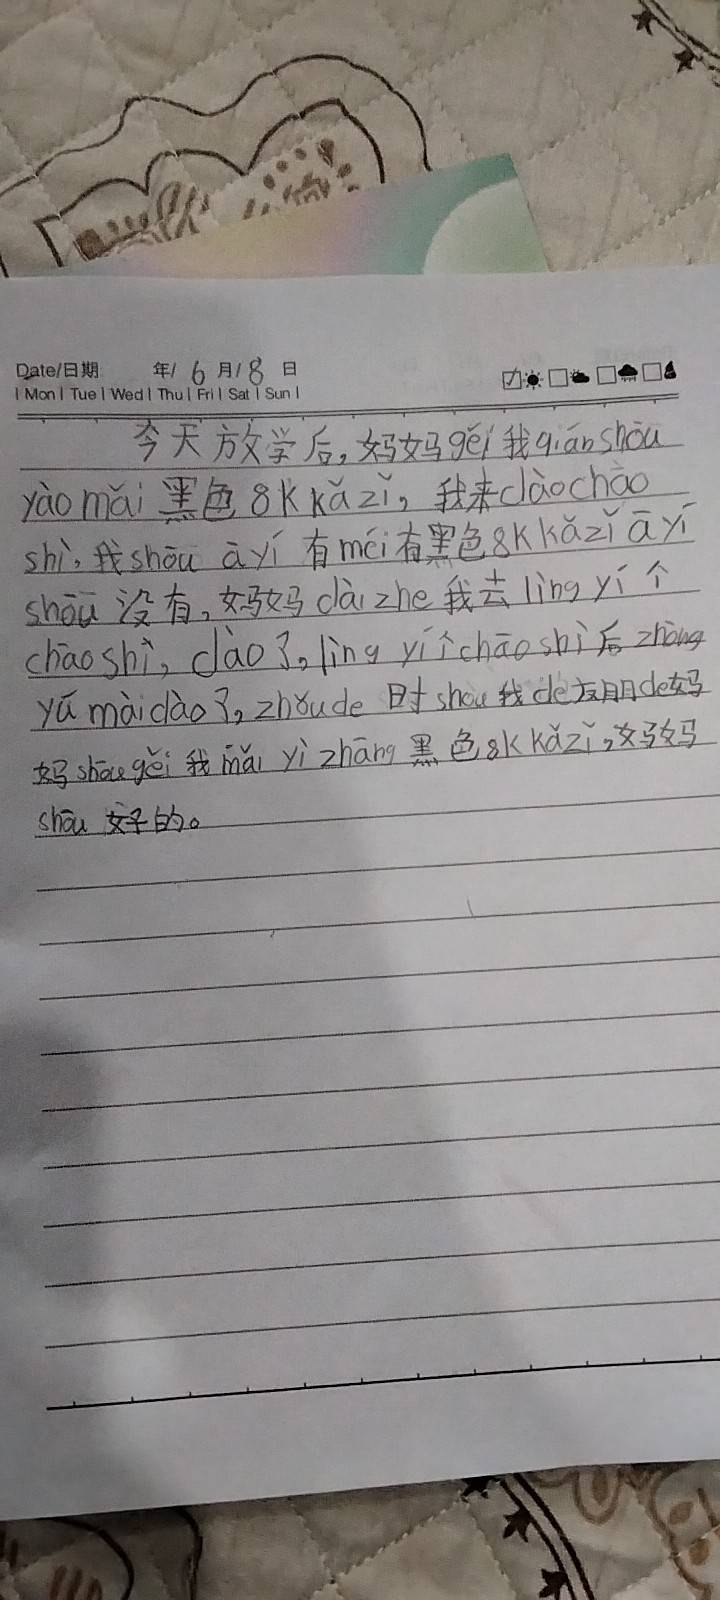 Date/日期 年/ 6 月/ 8 日
| Mon | Tue | Wed | Thu | Fri | Sat | Sun |
今天放学后,妈妈gěi我qiánshōu
yàomǎi黑色8Kkǎzǐ,我来dàochāo
shì,我shōu āyí有méi有黑色8Kkǎzǐāyí
shōu没有,妈妈dàizhe我去lìngyí个
chāoshì,dào了,lìngyí个chāoshì后zhōng
yúmàidào了,zhǒude时shou我de友朋de妈
妈shōugěi我mǎi yìzhāng黑色8Kkǎzǐ,妈妈
shōu好的。